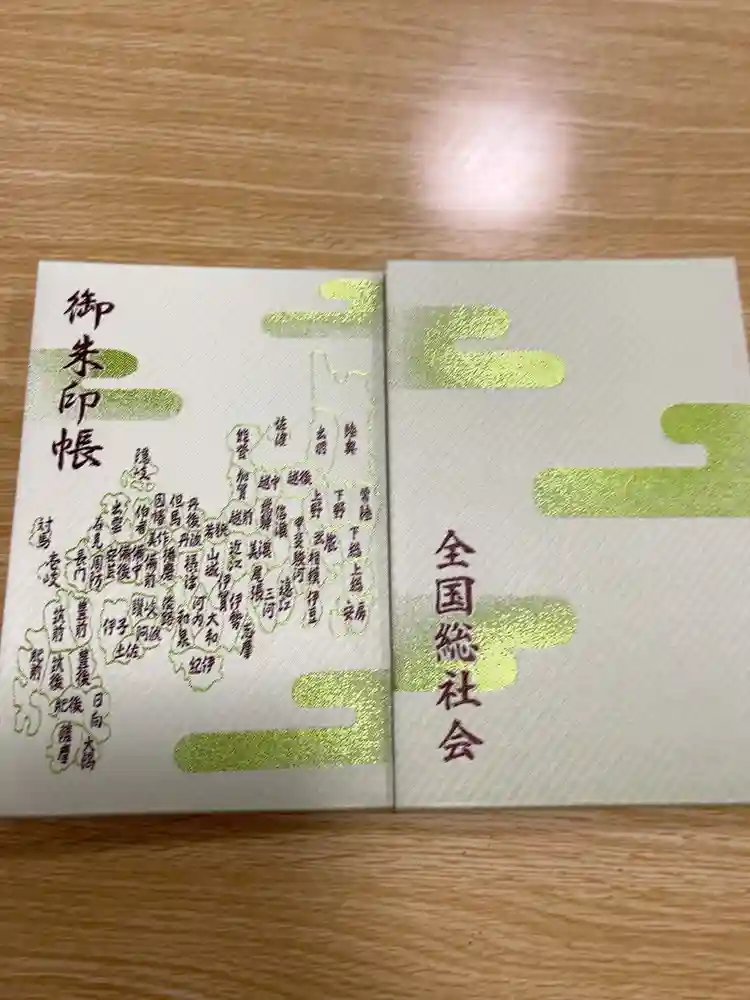 御朱印帳
陸奥
出羽
佐渡
能登
加賀
越中
越後
越前
飛騨
信濃
上野
下野
常陸
下総
上総
安房
武蔵
相模
伊豆
甲斐
駿河
遠江
三河
尾張
美濃
近江
若狭
山城
伊賀
伊勢
志摩
大和
河内
和泉
紀伊
摂津
丹波
丹後
但馬
因幡
伯耆
隠岐
出雲
石見
美作
播磨
備前
備中
備後
安芸
周防
長門
淡路
讃岐
阿波
伊予
土佐
対馬
壱岐
筑前
豊前
肥前
筑後
豊後
肥後
日向
薩摩
大隅
全国総社会